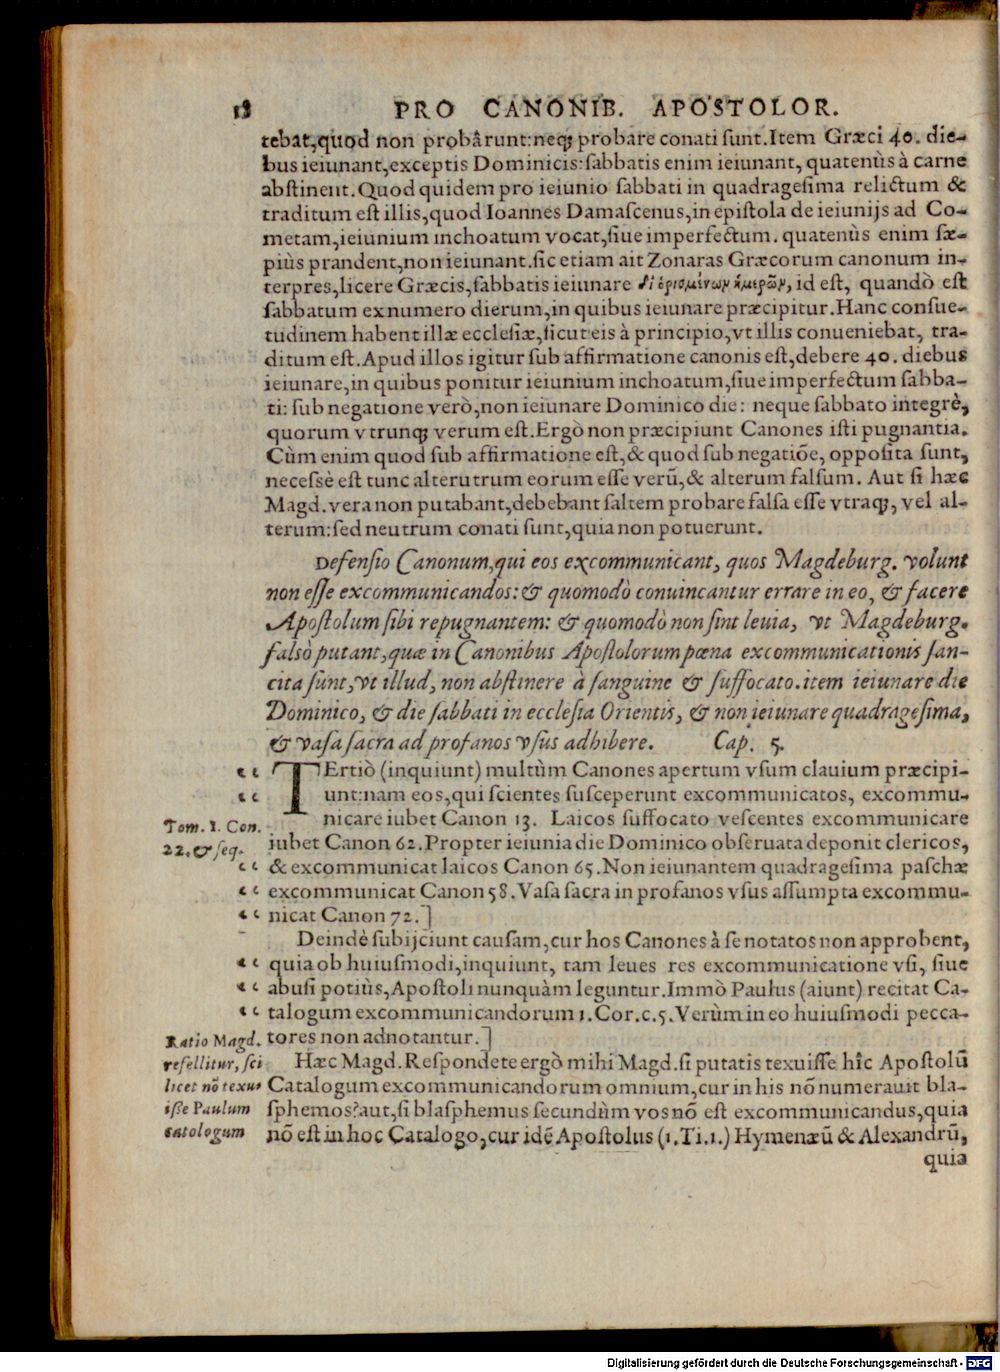 18 PRO CANONIB. APOSTOLOR.
tebat,quod non probârunt:neq; probare conati ſunt.Item Græci 40. die-
bus ieiunant,exceptis Dominicis:ſabbatis enim ieiunant, quatenùs à carne
abſtinent.Quod quidem pro ieiunio ſabbati in quadrageſima relictum &
traditum eſt illis,quod Ioannes Damaſcenus,in epiſtola de ieiunijs ad Co-
metam,ieiunium inchoatum vocat,ſiue imperfectum. quatenùs enim ſæ-
piùs prandent,non ieiunant.ſic etiam ait Zonaras Græcorum canonum in-
terpres,licere Græcis,ſabbatis ieiunare δι' ὁρισμένων ἡμερῶν, id eſt, quandò eſt
ſabbatum ex numero dierum,in quibus ieiunare præcipitur.Hanc conſue-
tudinem habent illæ eccleſiæ,ſicut eis à principio,vt illis conueniebat, tra-
ditum eſt.Apud illos igitur ſub affirmatione canonis eſt,debere 40. diebus
ieiunare,in quibus ponitur ieiunium inchoatum,ſiue imperfectum ſabba-
ti: ſub negatione verò,non ieiunare Dominico die: neque ſabbato integrè,
quorum vtrunq; verum eſt.Ergò non præcipiunt Canones iſti pugnantia.
Cùm enim quod ſub affirmatione eſt,& quod ſub negatiõe, oppoſita ſunt,
neceſsè eſt tunc alterutrum eorum eſſe verũ,& alterum falſum. Aut ſi hæc
Magd.vera non putabant,debebant ſaltem probare falſa eſſe vtraq;, vel al-
terum:ſed neutrum conati ſunt,quia non potuerunt.
Defenſio Canonum,qui eos excommunicant, quos Magdeburg. volunt
non eſſe excommunicandos:& quomodò conuincantur errare in eo, & facere
Apoſtolum ſibi repugnantem: & quomodò non ſint leuia, vt Magdeburg.
falsò putant,quæ in Canonibus Apoſtolorum pœna excommunicationis ſan-
cita ſunt,vt illud, non abſtinere à ſanguine & ſuffocato.item ieiunare die
Dominico, & die ſabbati in eccleſia Orientis, & non ieiunare quadrageſima,
& vaſa ſacra ad profanos vſus adhibere. Cap. 5.
“ TErtiò (inquiunt) multùm Canones apertum vſum clauium præcipi-
“ unt:nam eos,qui ſcientes ſuſceperunt excommunicatos, excommu-
nicare iubet Canon 13. Laicos ſuffocato veſcentes excommunicare
Tom. 1. Con.
22. & ſeq.
iubet Canon 62.Propter ieiunia die Dominico obſeruata deponit clericos,
“ & excommunicat laicos Canon 65.Non ieiunantem quadrageſima paſchæ
“ excommunicat Canon 58.Vaſa ſacra in profanos vſus aſſumpta excommu-
“ nicat Canon 72.]
Deindè ſubijciunt cauſam,cur hos Canones à ſe notatos non approbent,
“ quia ob huiuſmodi,inquiunt, tam leues res excommunicatione vſi, ſiue
“ abuſi potiùs,Apoſtoli nunquàm leguntur.Immò Paulus (aiunt) recitat Ca-
“ talogum excommunicandorum 1.Cor.c.5.Verùm in eo huiuſmodi pecca-
tores non adnotantur.]
Ratio Magd.
refellitur, ſci
licet nõ texu-
iſſe Paulum
catologum
Hæc Magd.Reſpondete ergò mihi Magd.ſi putatis texuiſſe hîc Apoſtolũ
Catalogum excommunicandorum omnium,cur in his nõ numerauit bla-
ſphemos?aut,ſi blaſphemus ſecundùm vos nõ eſt excommunicandus,quia
nõ eſt in hoc Catalogo,cur idẽ Apoſtolus (1.Ti.1.) Hymenæũ & Alexandrũ,
quia
Digitalisierung gefördert durch die Deutsche Forschungsgemeinschaft - DFG